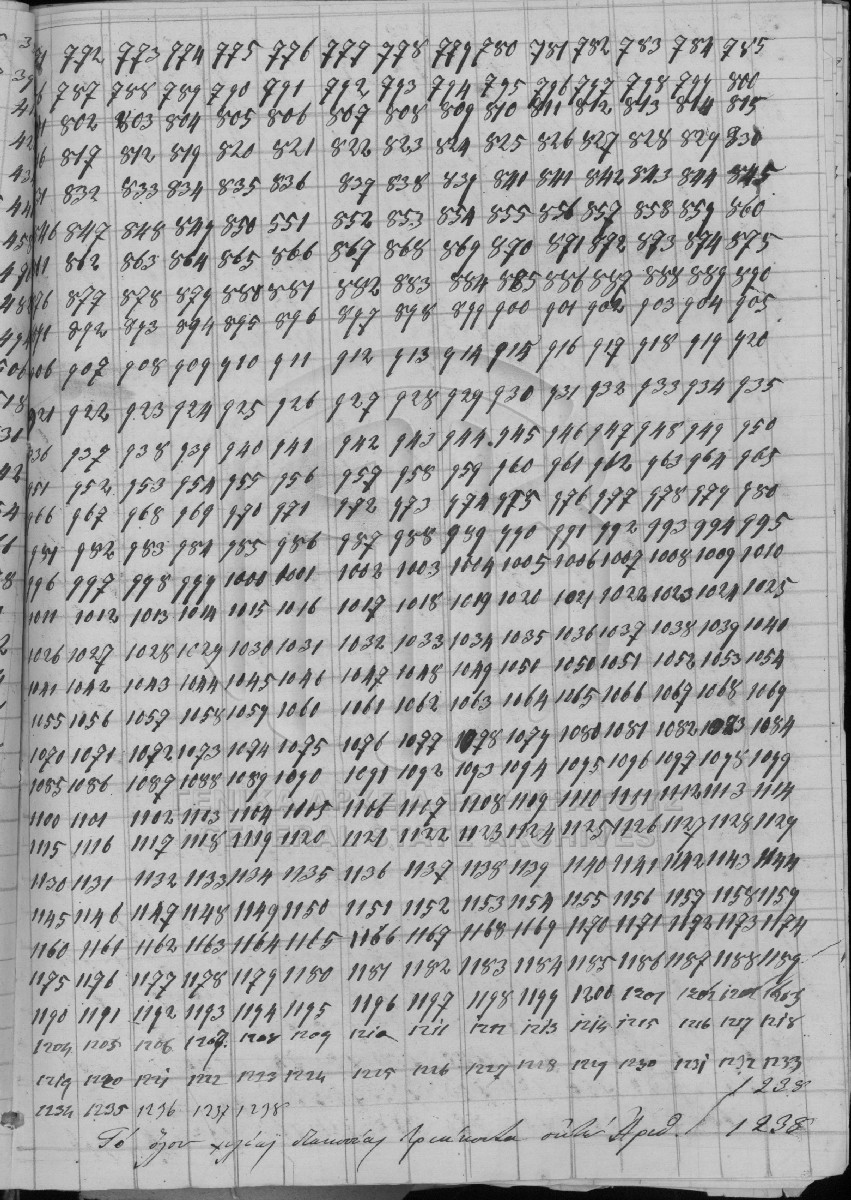 772 773 774 775 776 777 778 779 780 781 782 783 784 785
787 788 789 790 791 792 793 794 795 796 797 798 799 800
802 803 804 805 806 807 808 809 810 811 812 813 814 815
817 812 819 820 821 822 823 824 825 826 827 828 829 830
832 833 834 835 836 837 838 839 841 841 842 843 844 845
846 847 848 849 850 551 852 853 854 855 856 857 858 859 860
862 863 864 865 866 867 868 869 870 871 872 873 874 875
877 878 879 880 881 882 883 884 885 886 887 888 889 890
892 893 894 895 896 897 898 899 900 901 902 903 904 905
906 907 908 909 910 911 912 913 914 915 916 917 918 919 920
921 922 923 924 925 926 927 928 929 930 931 932 933 934 935
936 937 938 939 940 941 942 943 944 945 946 947 948 949 950
951 952 953 954 955 956 957 958 959 960 961 962 963 964 965
966 967 968 969 970 971 972 973 974 975 976 977 978 979 980
981 982 983 984 985 986 987 988 989 990 991 992 993 994 995
996 997 998 999 1000 1001 1002 1003 1004 1005 1006 1007 1008 1009 1010
1011 1012 1013 1014 1015 1016 1017 1018 1019 1020 1021 1022 1023 1024 1025
1026 1027 1028 1029 1030 1031 1032 1033 1034 1035 1036 1037 1038 1039 1040
1041 1042 1043 1044 1045 1046 1047 1048 1049 1050 1050 1051 1052 1053 1054
1055 1056 1057 1058 1059 1060 1061 1062 1063 1064 1065 1066 1067 1068 1069
1070 1071 1072 1073 1074 1075 1076 1077 1078 1079 1080 1081 1082 1083 1084
1085 1086 1087 1088 1089 1090 1091 1092 1093 1094 1095 1096 1097 1098 1099
1100 1101 1102 1103 1104 1105 1106 1107 1108 1109 1110 1111 1112 1113 1114
1115 1116 1117 1118 1119 1120 1121 1122 1123 1124 1125 1126 1127 1128 1129
1130 1131 1132 1133 1134 1135 1136 1137 1138 1139 1140 1141 1142 1143 1144
1145 1146 1147 1148 1149 1150 1151 1152 1153 1154 1155 1156 1157 1158 1159
1160 1161 1162 1163 1164 1165 1166 1167 1168 1169 1170 1171 1172 1173 1174
1175 1176 1177 1178 1179 1180 1181 1182 1183 1184 1185 1186 1187 1188 1189
1190 1191 1192 1193 1194 1195 1196 1197 1198 1199 1200 1201 1202 1203
1204 1205 1206 1207 1208 1209 1210 1211 1212 1213 1214 1215 1216 1217 1218
1219 1220 1221 1222 1223 1224 1225 1226 1227 1228 1229 1230 1231 1232 1233
1238
1234 1235 1236 1237 1238
Τό ὅλον χιλίαι διακοσίαι τριάκοντα ὀκτώ Ἀριθ. 1238